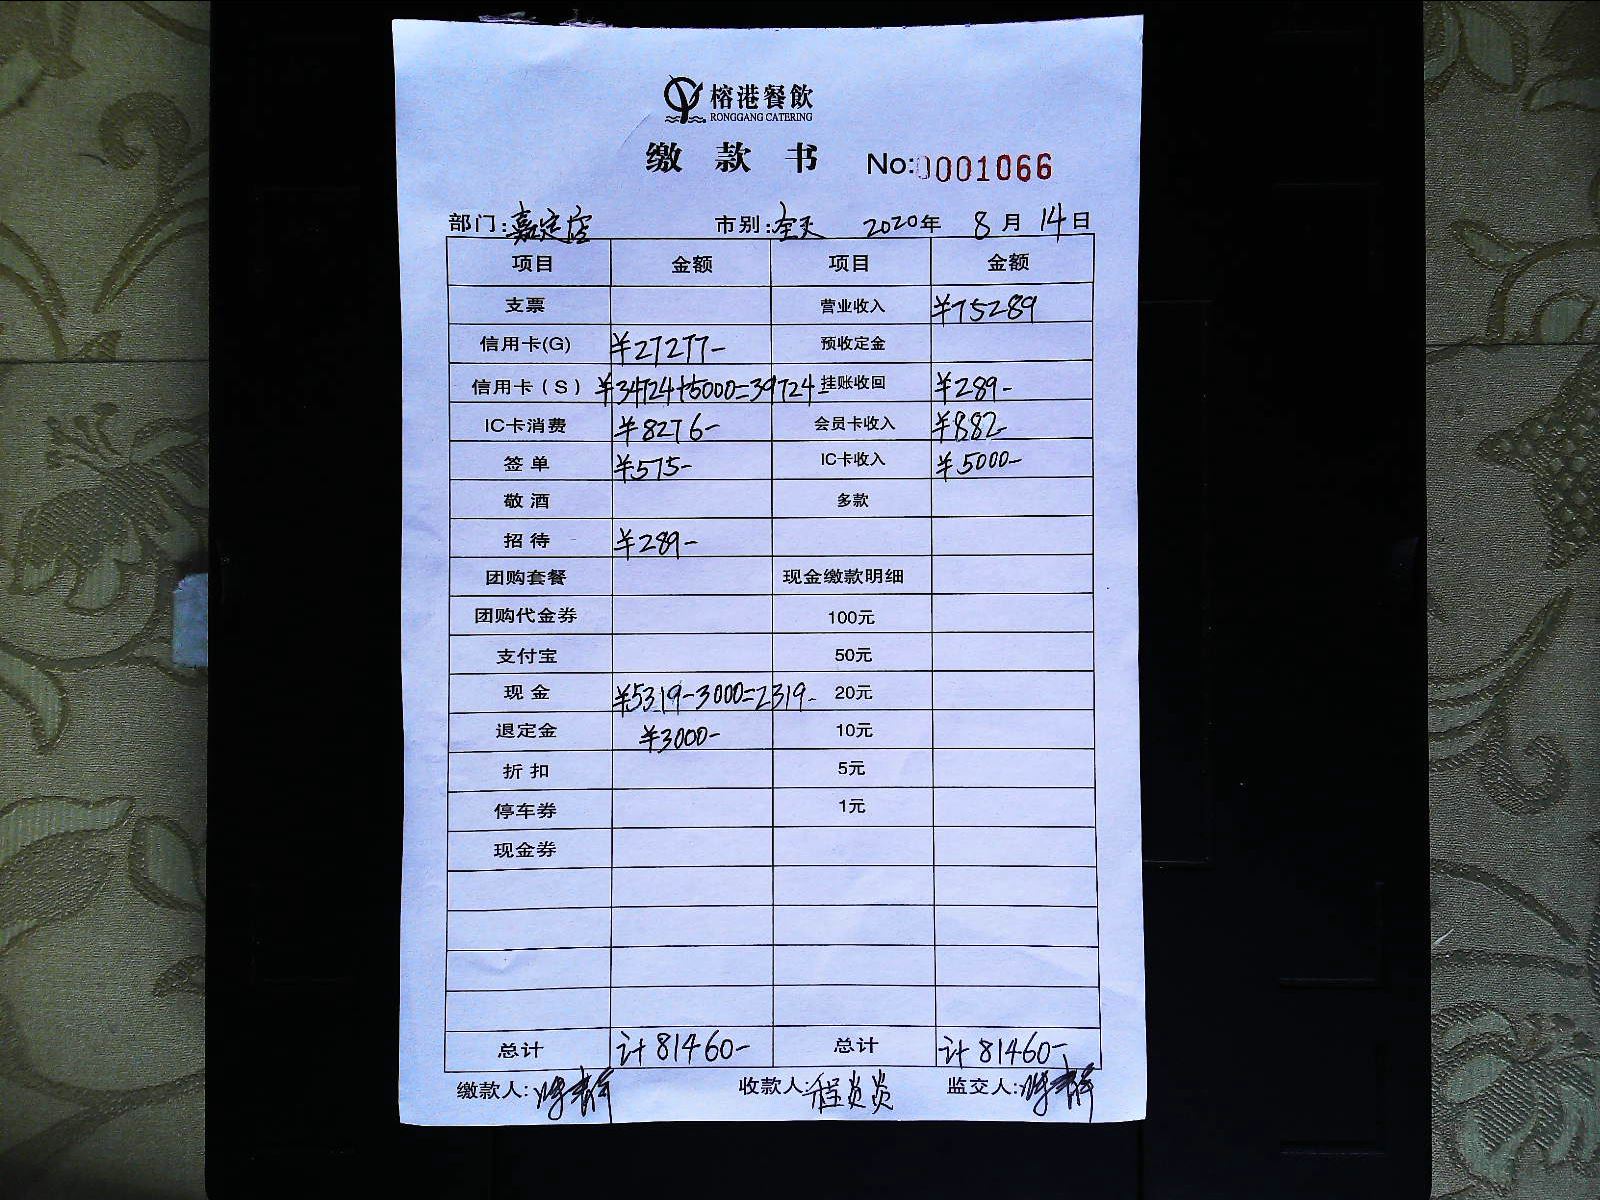 榕港餐飲
RONGGANG CATERING
缴款书 No:0001066
部门:嘉定店 市别:全天 2020年 8月 14日
项目 金额 项目 金额
支票 营业收入 ¥75289
信用卡(G) ¥27277- 预收定金
信用卡(S) ¥34724+5000=39724 挂账收回 ¥289-
IC卡消费 ¥8276- 会员卡收入 ¥882-
签单 ¥575- IC卡收入 ¥5000-
敬酒 多款
招待 ¥289-
团购套餐 现金缴款明细
团购代金券 100元
支付宝 50元
现金 ¥5319-3000=2319- 20元
退定金 ¥3000- 10元
折扣 5元
停车券 1元
现金券
总计 计81460- 总计 计81460-
缴款人: 收款人:程炎炎 监交人: